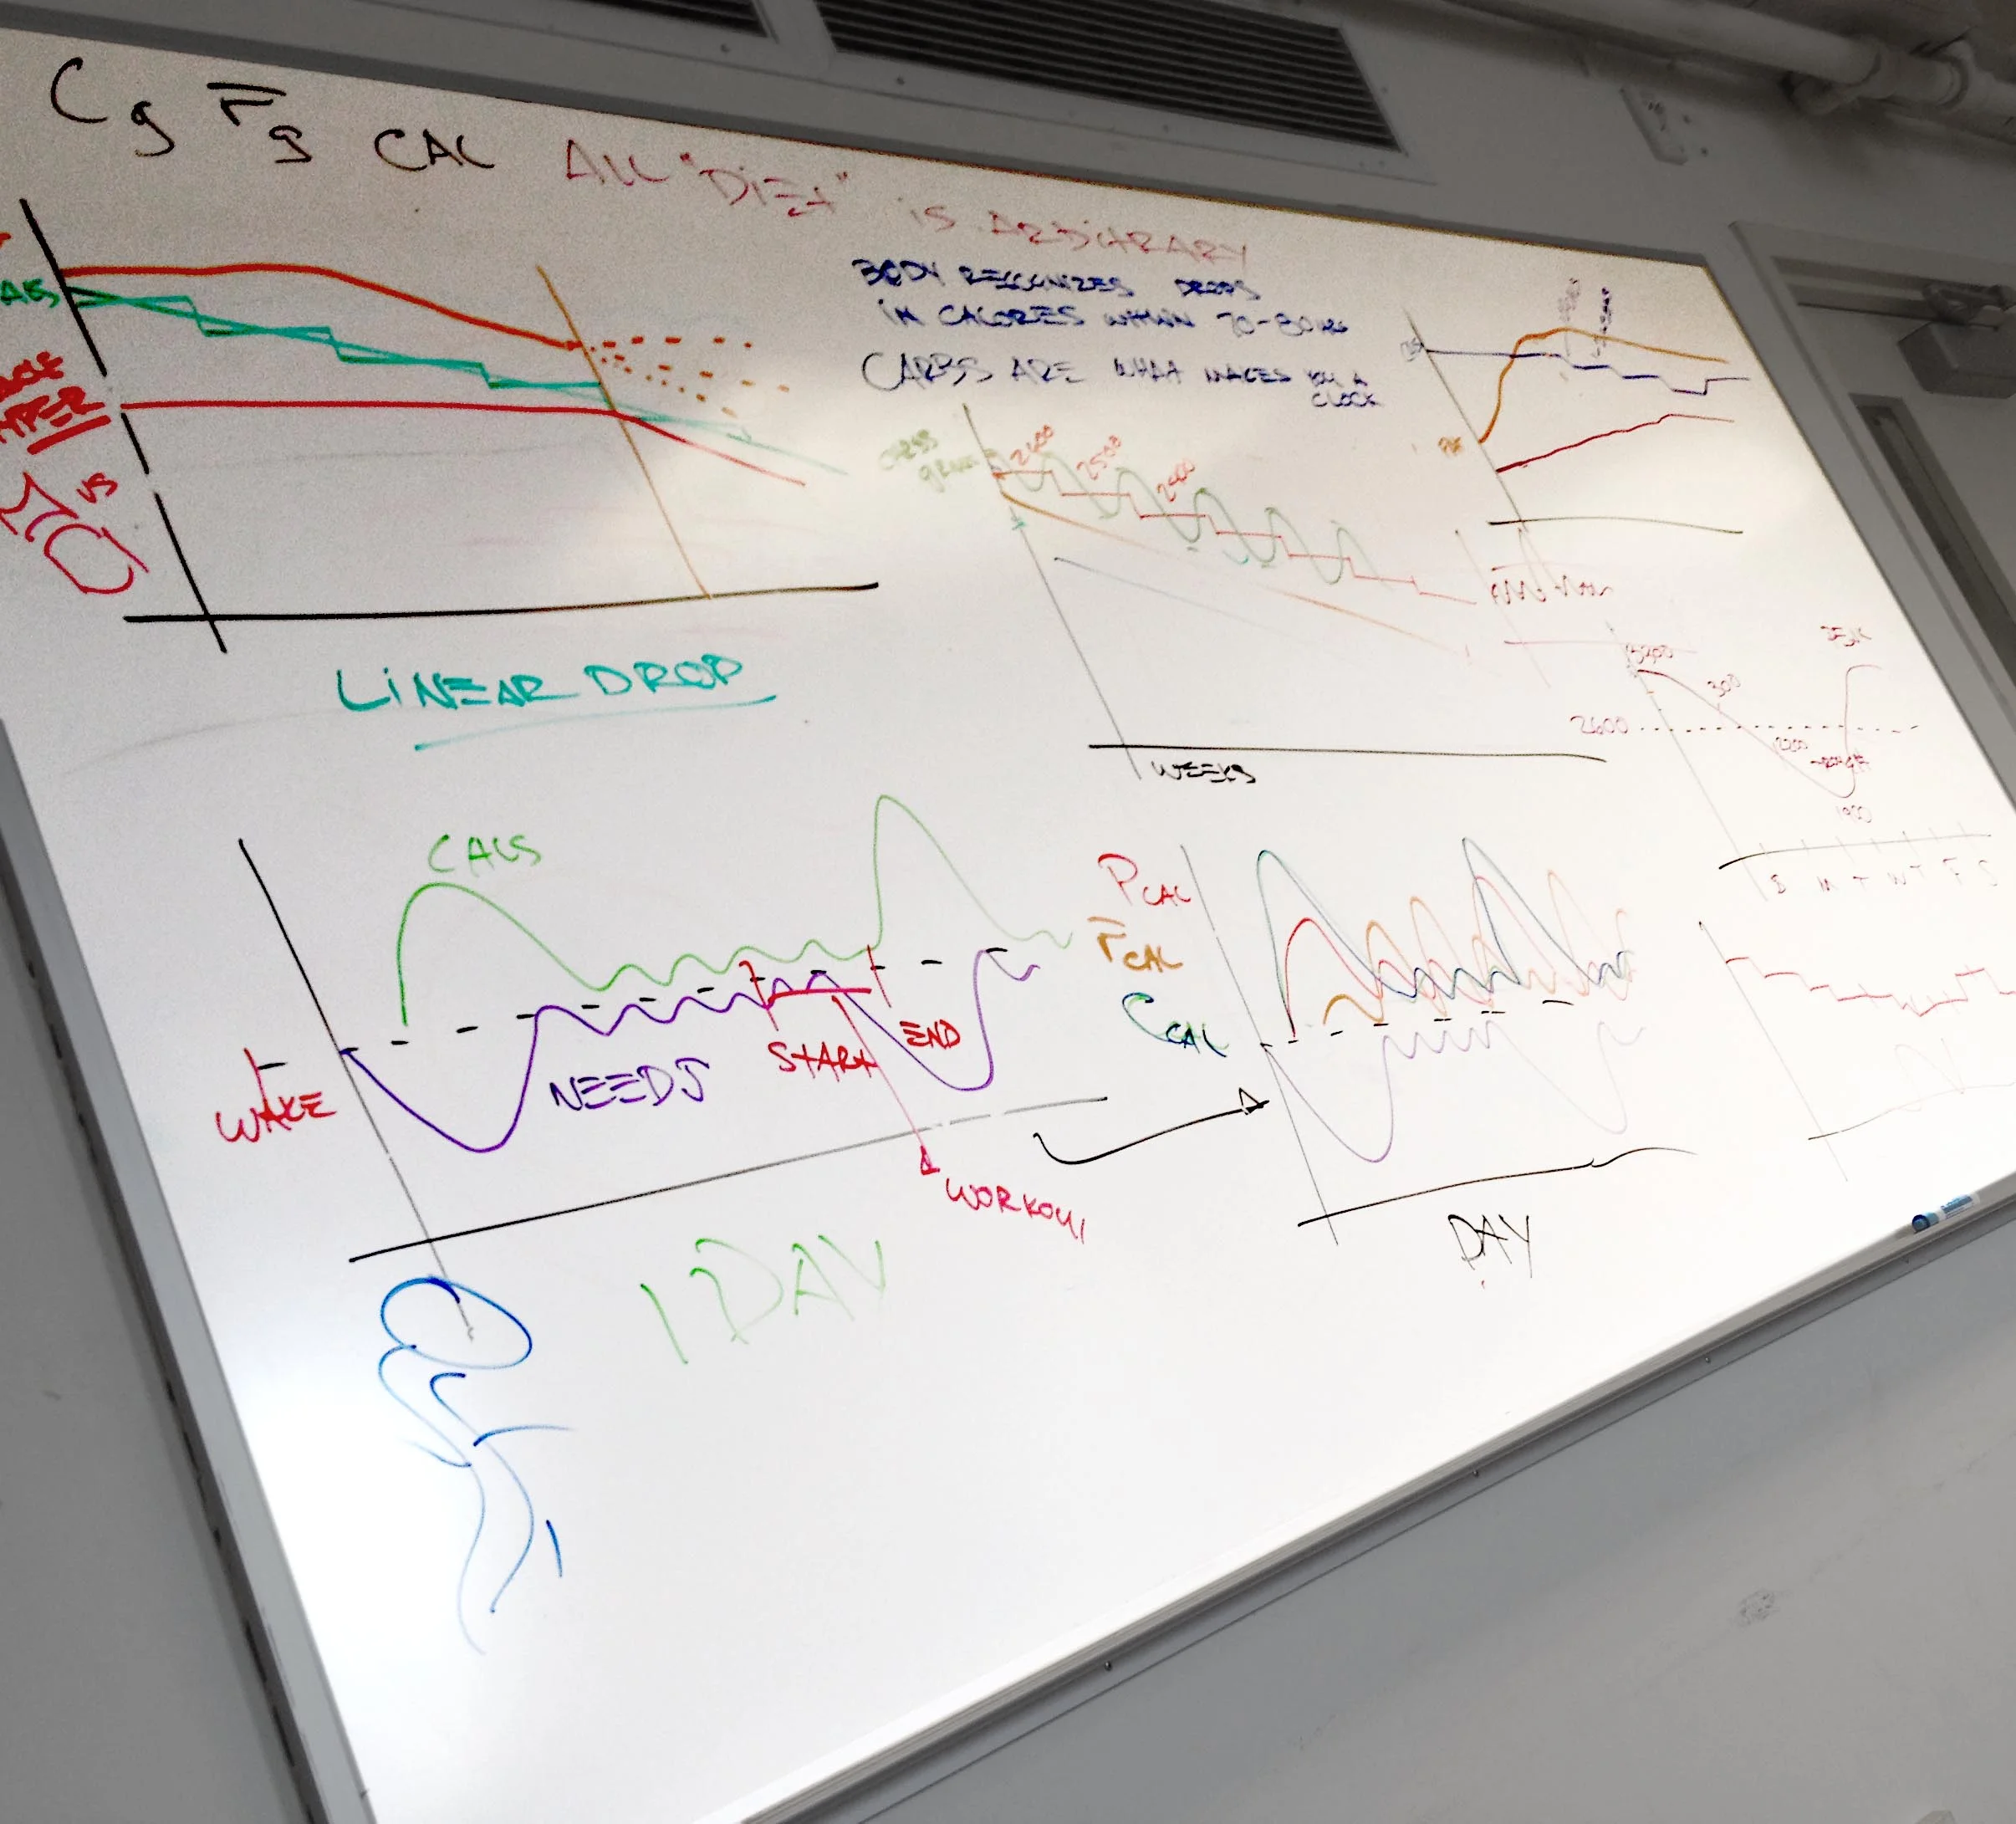 Cg Fg CAL ALL "DiEt" is ARBitRARY
BODY RECOGNIZES DROPS
iN CALORIES WitHiN 70-80 HRS
CARBS ARE WHAt MAKES YOU A
CLOCK
VS
LiNEAR DROP
2600
2500
2400
WEEKS
3200
300
2600
2200
1900
S M T W T F S
CALS
WAKE
NEEDS
START
END
WORKOUT
1 DAY
PCAL
FCAL
CCAL
DAY